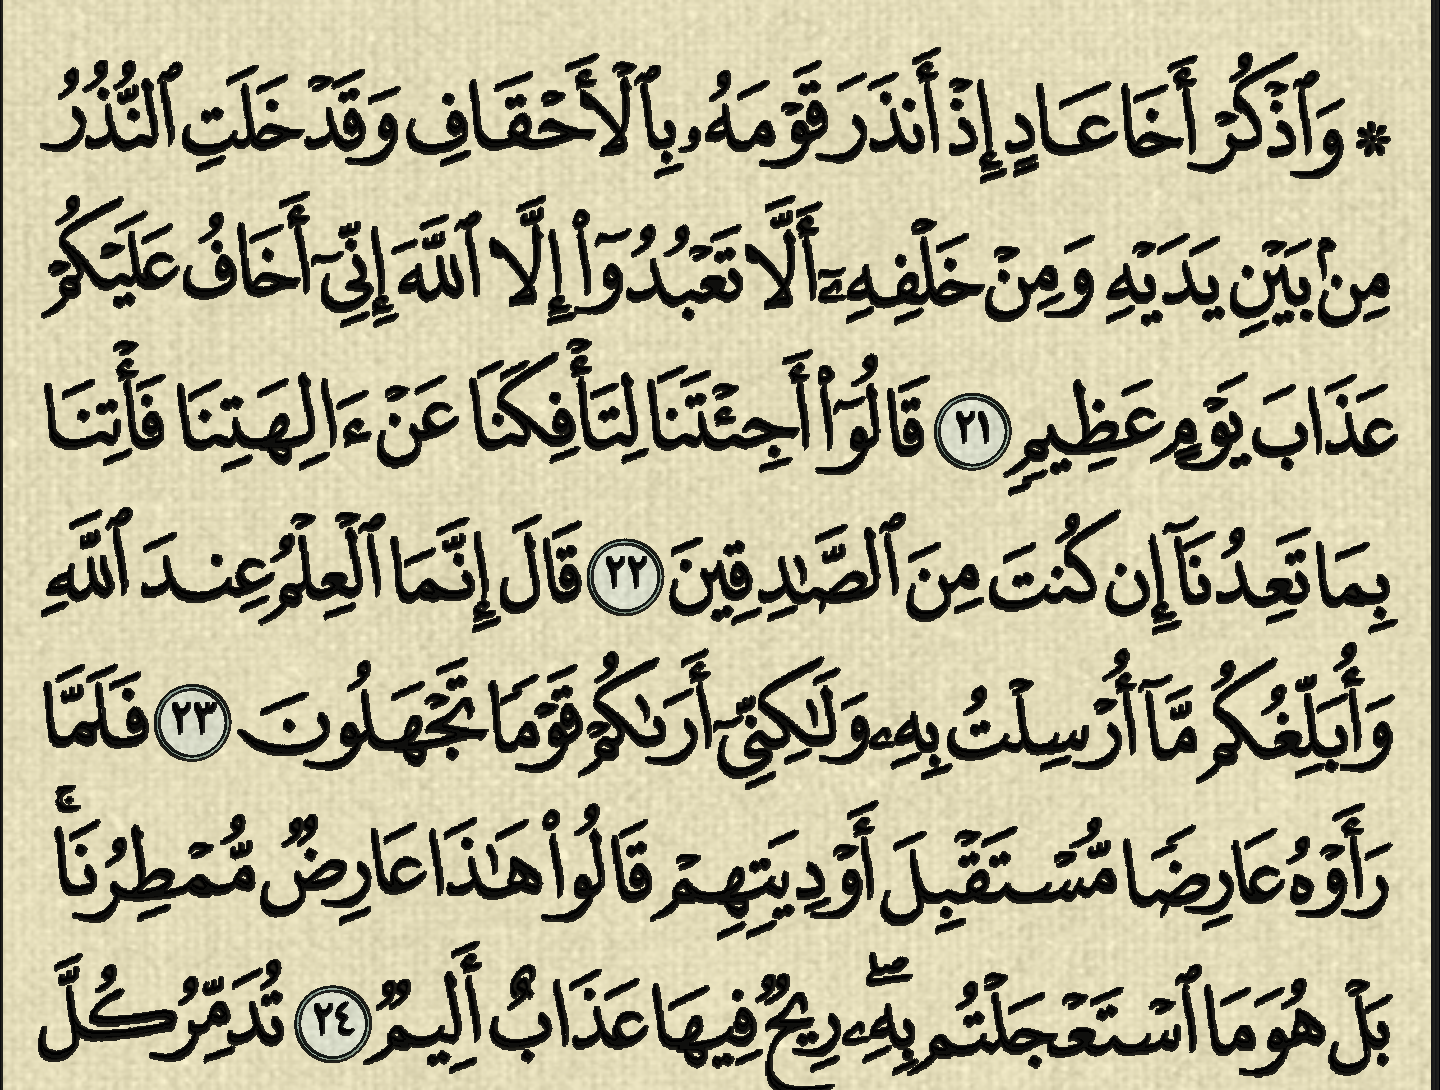 * وَٱذْكُرْ أَخَا عَادٍ إِذْ أَنذَرَ قَوْمَهُۥ بِٱلْأَحْقَافِ وَقَدْ خَلَتِ ٱلنُّذُرُ
مِنۢ بَيْنِ يَدَيْهِ وَمِنْ خَلْفِهِۦٓ أَلَّا تَعْبُدُوٓا۟ إِلَّا ٱللَّهَ إِنِّىٓ أَخَافُ عَلَيْكُمْ
عَذَابَ يَوْمٍ عَظِيمٍ ٢١ قَالُوٓا۟ أَجِئْتَنَا لِتَأْفِكَنَا عَنْ ءَالِهَتِنَا فَأْتِنَا
بِمَا تَعِدُنَآ إِن كُنتَ مِنَ ٱلصَّٰدِقِينَ ٢٢ قَالَ إِنَّمَا ٱلْعِلْمُ عِندَ ٱللَّهِ
وَأُبَلِّغُكُم مَّآ أُرْسِلْتُ بِهِۦ وَلَٰكِنِّىٓ أَرَىٰكُمْ قَوْمًا تَجْهَلُونَ ٢٣ فَلَمَّا
رَأَوْهُ عَارِضًا مُّسْتَقْبِلَ أَوْدِيَتِهِمْ قَالُوا۟ هَٰذَا عَارِضٌ مُّمْطِرُنَا ۚ
بَلْ هُوَ مَا ٱسْتَعْجَلْتُم بِهِۦ ۖ رِيحٌ فِيهَا عَذَابٌ أَلِيمٌ ٢٤ تُدَمِّرُ كُلَّ